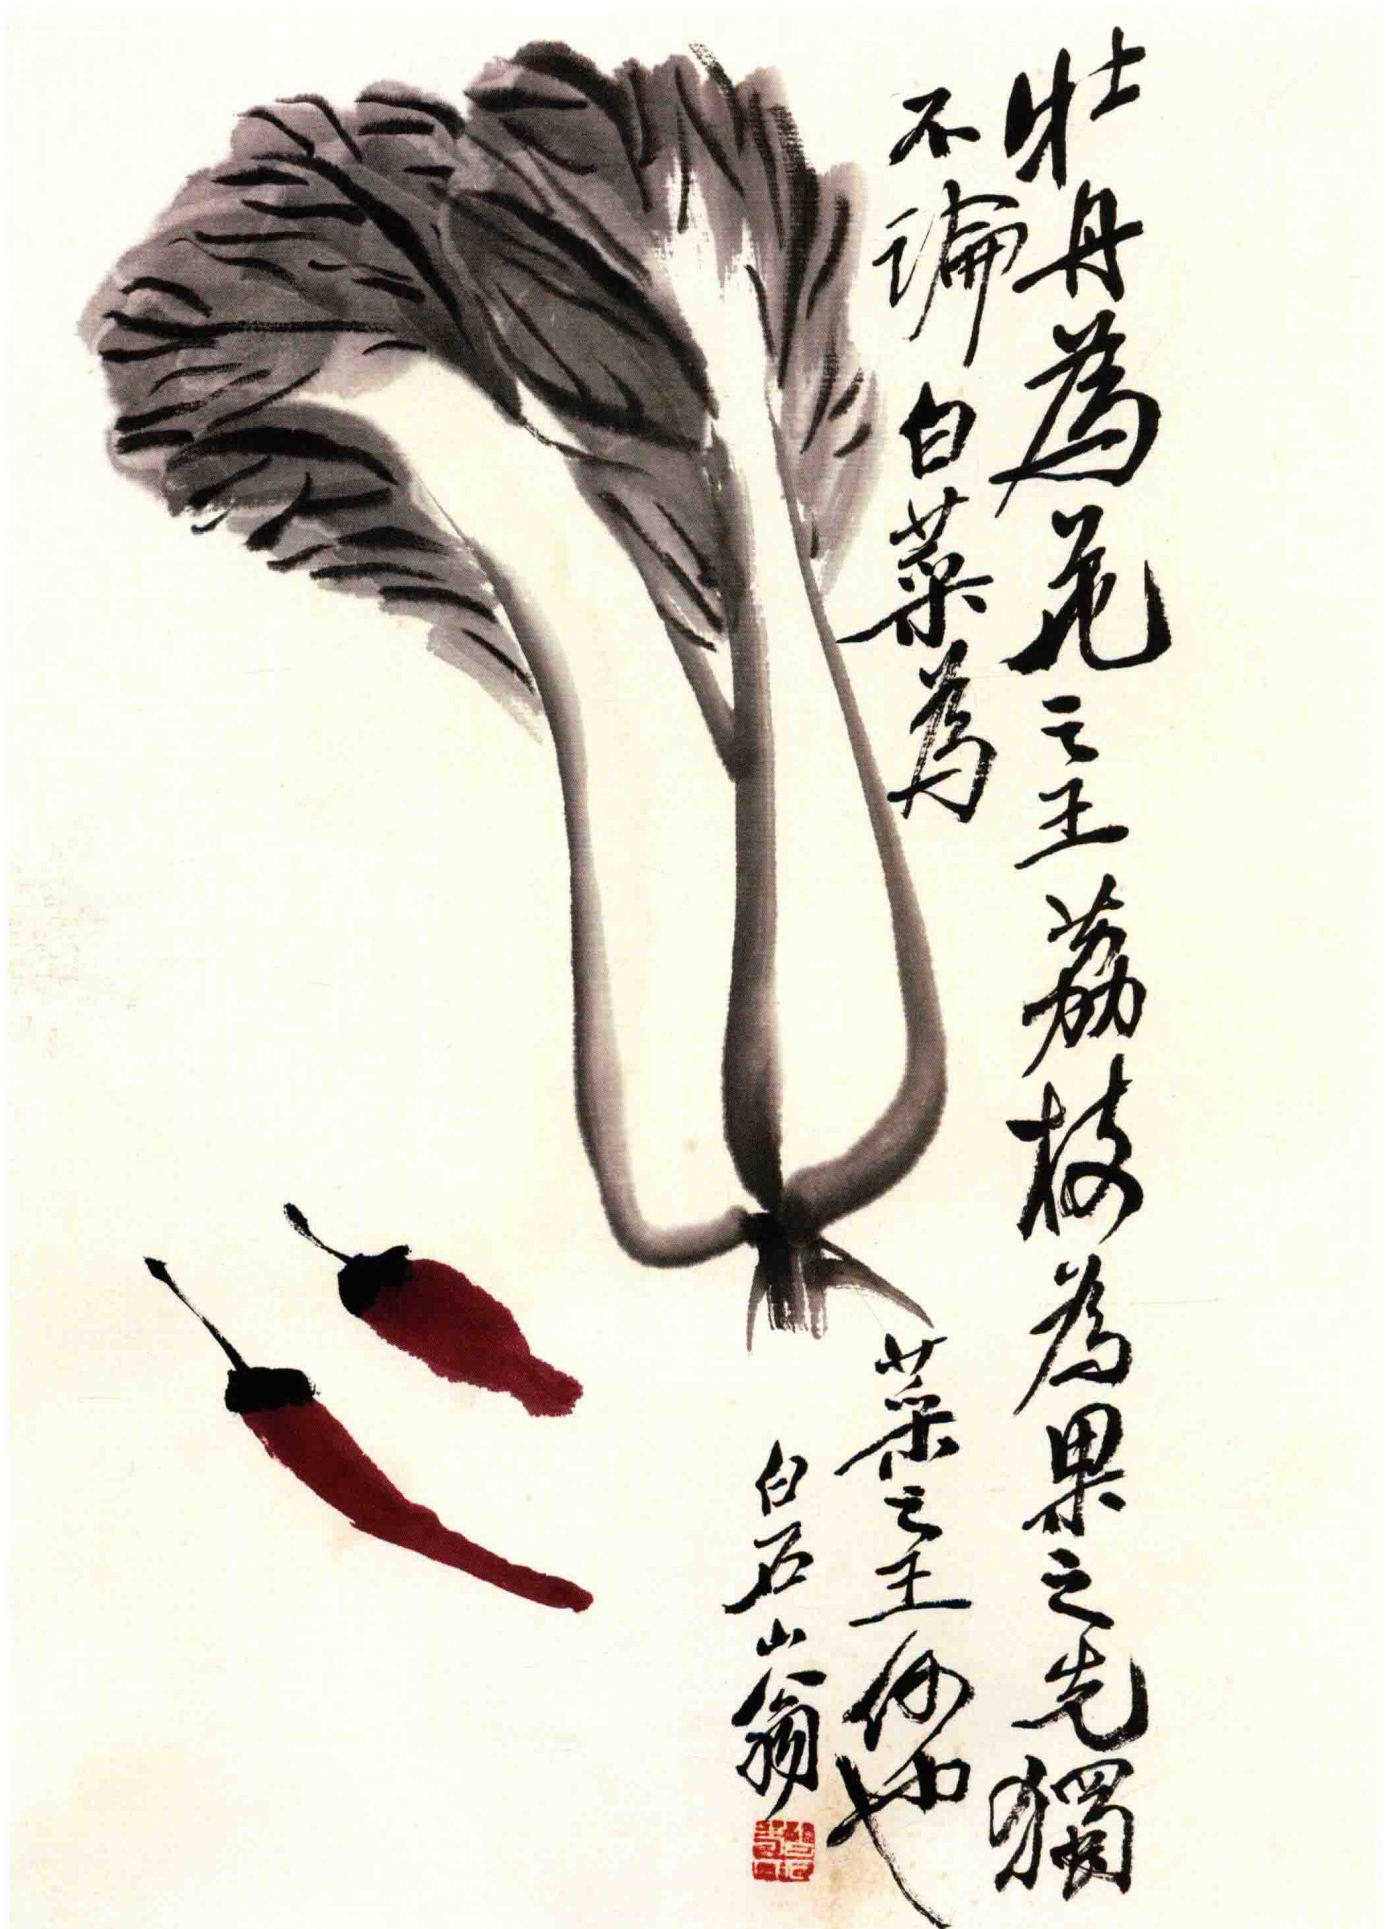 牡丹為花之王荔枝為果之先獨
不論白菜為
菜之王何也
白石山翁